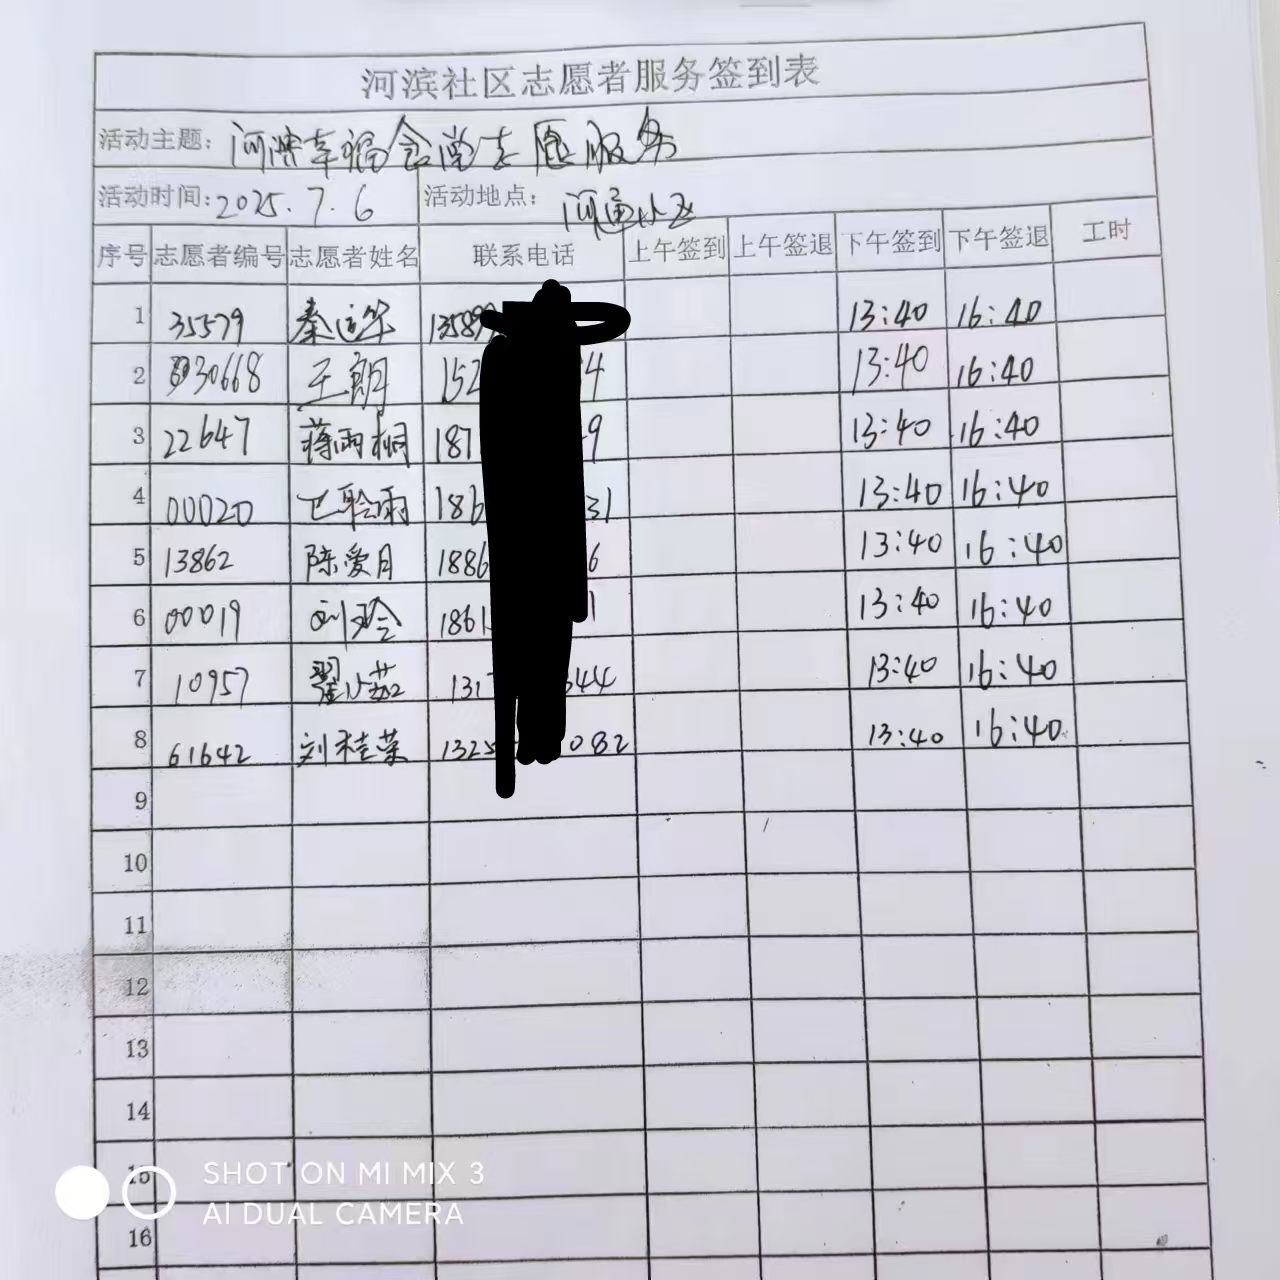 河滨社区志愿者服务签到表
活动主题: 河滨幸福食堂志愿服务
活动时间: 2025.7.6 活动地点: 河通小区
序号 志愿者编号 志愿者姓名 联系电话 上午签到 上午签退 下午签到 下午签退 工时
1 35579 秦运华 13589 13:40 16:40
2 30668 王朗 152 4 13:40 16:40
3 22647 蒋雨桐 187 9 13:40 16:40
4 00020 聆雨 186 31 13:40 16:40
5 13862 陈爱月 1886 6 13:40 16:40
6 00019 刘玲 1861 1 13:40 16:40
7 10957 翟小茹 131 344 13:40 16:40
8 61642 刘桂荣 1325 082 13:40 16:40
9
10
11
12
13
14
15
16
SHOT ON MI MIX 3
AI DUAL CAMERA